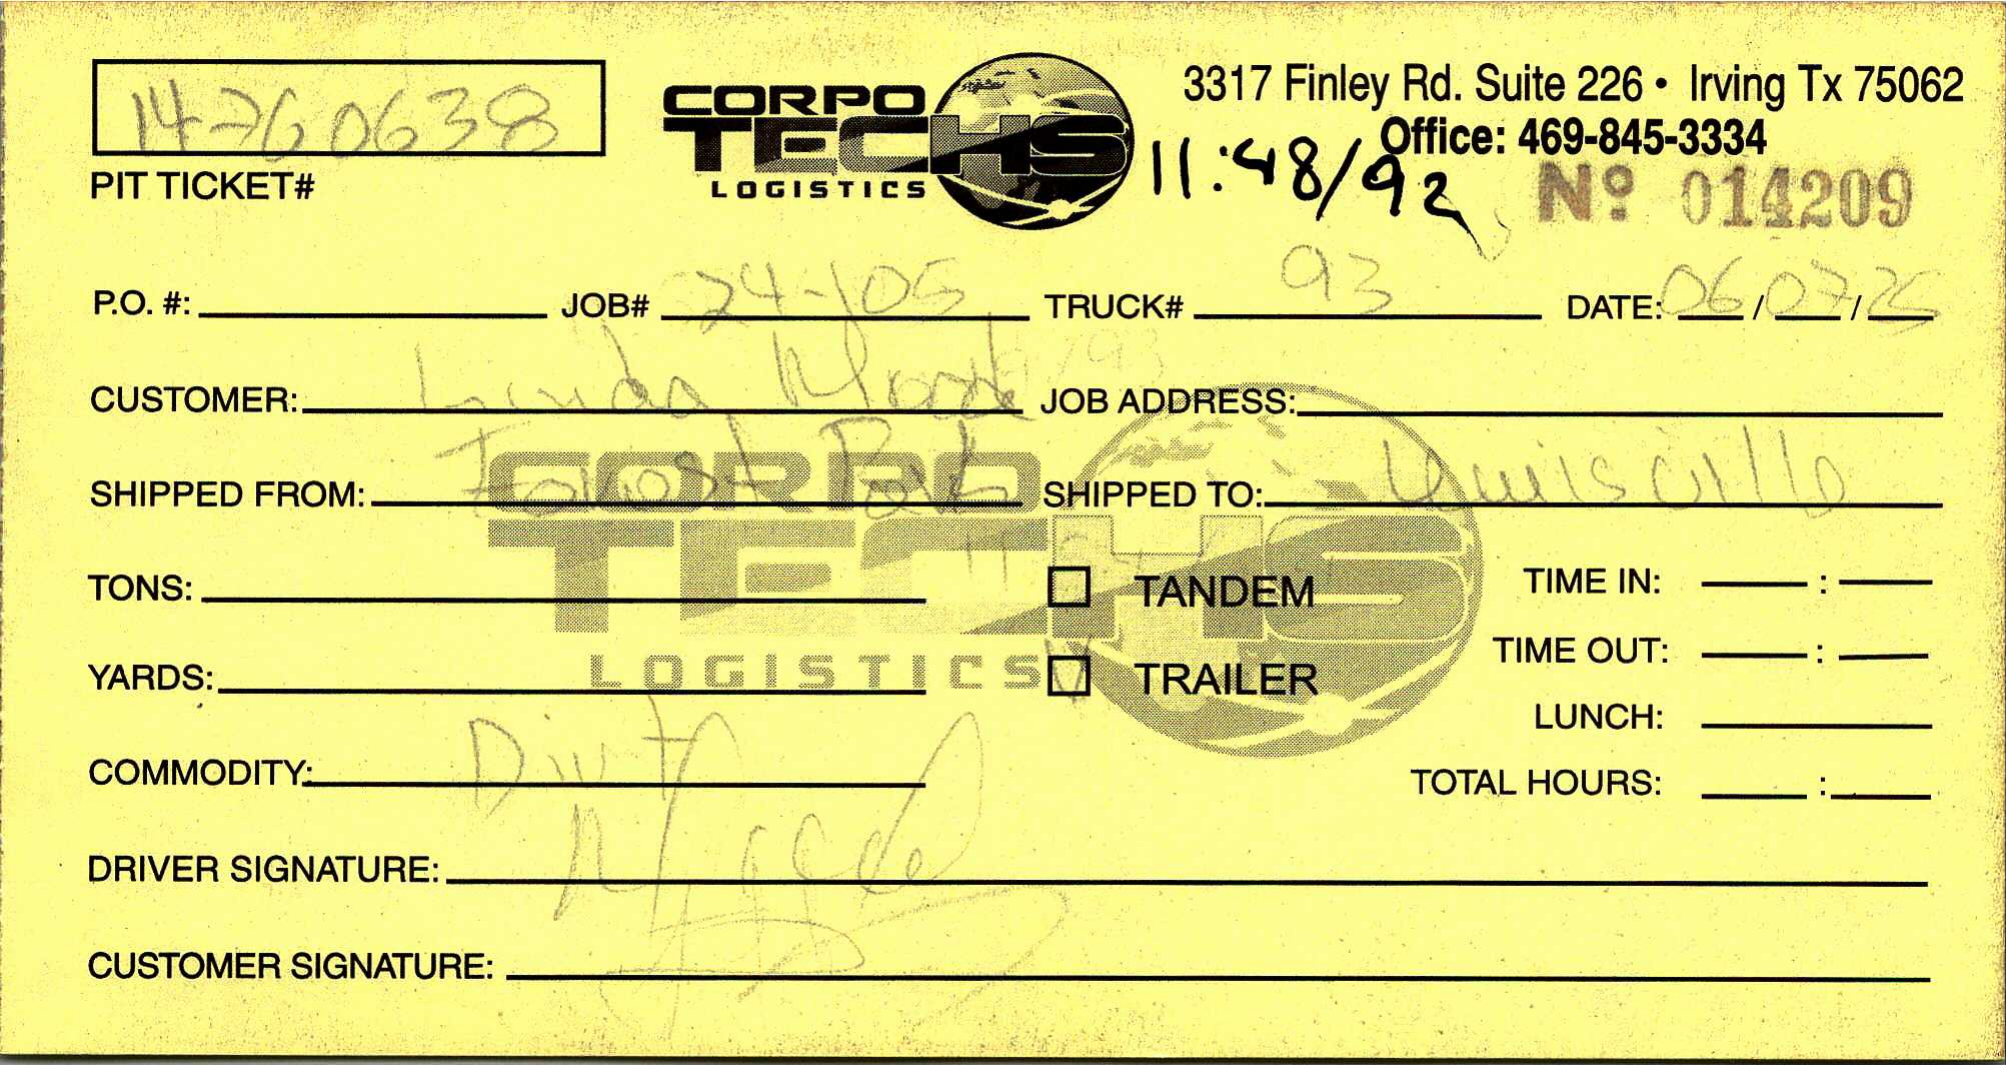 14760638
PIT TICKET#
CORPO
TECHS
LOGISTICS
3317 Finley Rd. Suite 226 • Irving Tx 75062
Office: 469-845-3334
11:48/92
Nº 014209
P.O. #: JOB# 24-105 TRUCK# 93 DATE: 06/07/25
CUSTOMER: Linda JOB ADDRESS:
SHIPPED FROM: Forest Park SHIPPED TO:
CORPO
TECHS
LOGISTICS
TONS: TANDEM TIME IN: :
TIME OUT: :
YARDS: TRAILER
LUNCH:
COMMODITY: Dirt TOTAL HOURS: :
DRIVER SIGNATURE:
CUSTOMER SIGNATURE: